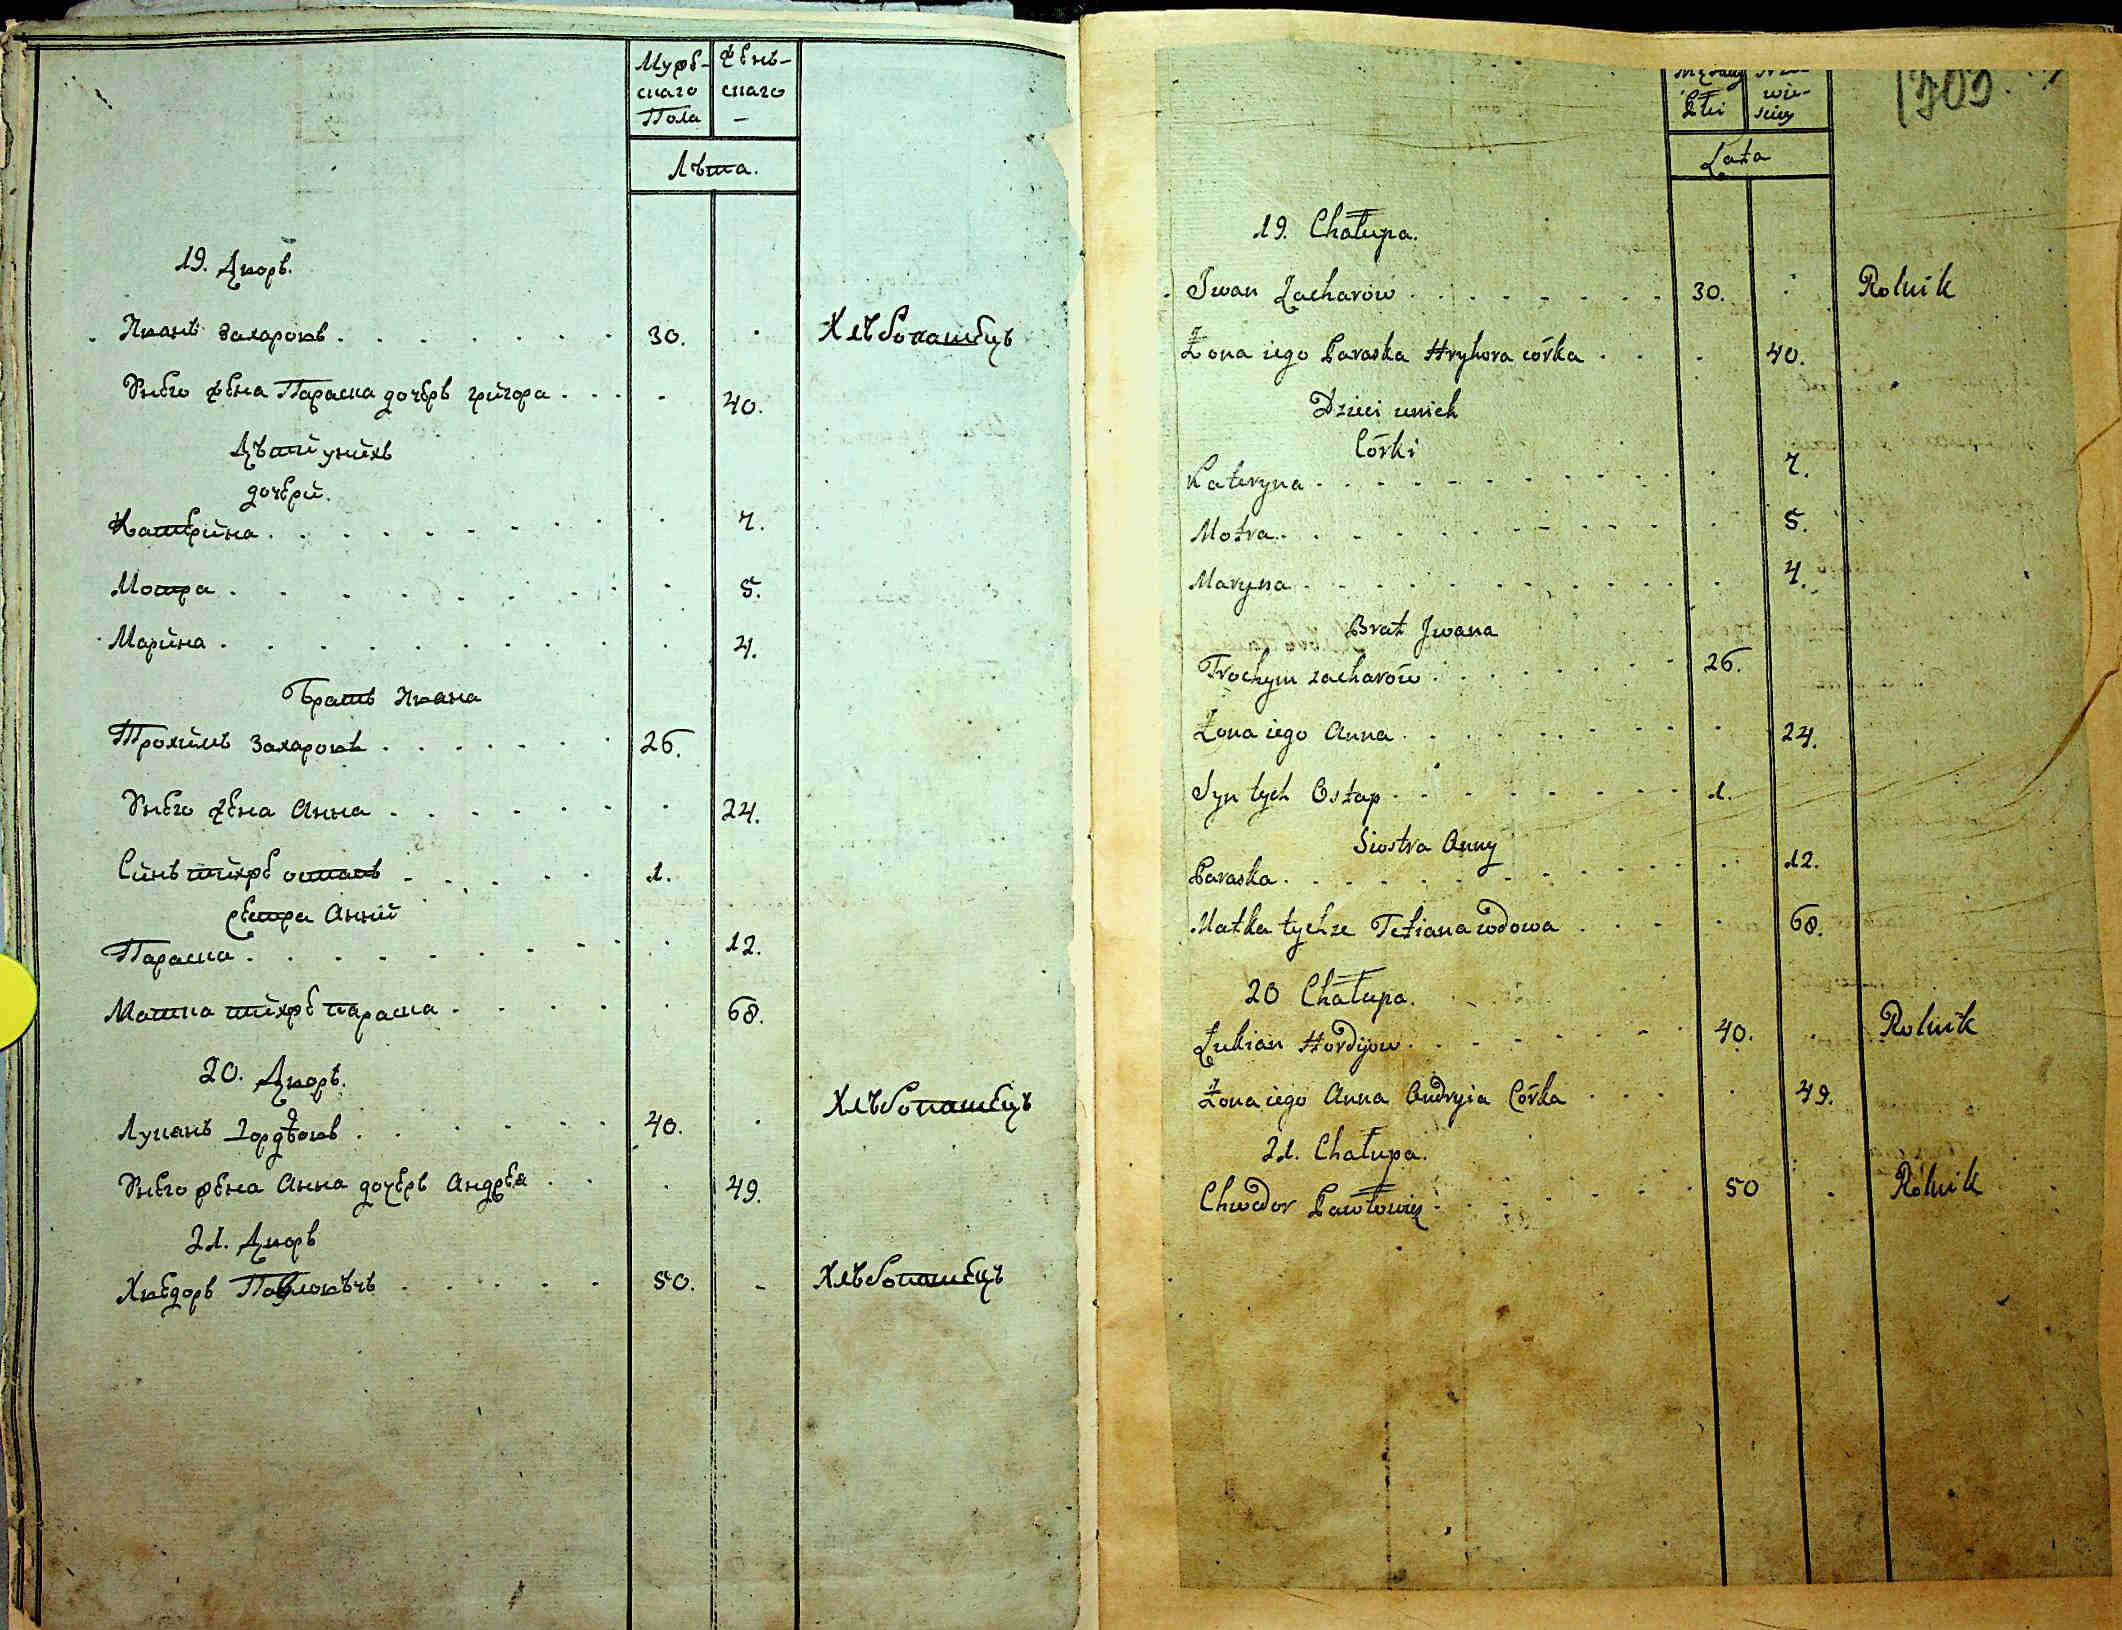 Мужеска­го Пола
Женьскаго -
Лѣта.
19. Дворъ.
Иванъ Захаровъ 30. Хлѣбопашецъ
Унего жена Параска дочерь григора 40.
Дѣти унихъ
дочери.
Катерина 7.
Мотра 5.
Марина 4.
Братъ Ивана
Трохимъ Захаровъ 26.
Унего жена Анна 24.
Синъ тихже остапъ 1.
Сестра Анни
Параска 12.
Матка тихже параска 68.
20. Дворъ.
Лукянъ Гордѣовъ 40. Хлѣбопашецъ
Унего жена Анна дочерь Андрея 49.
21. Дворъ
Хведоръ Павловѣчъ 50. - Хлѣбопашецъ
Płci
wie-
sciey
Lata
19. Chałupa.
Iwan Zacharow 30. Rolnik
Żona iego Paraska Hryhora córka 40.
Dzieci unich
Córki
Kateryna 7.
Motra 5.
Maryna 4.
Brat Iwana
Trochym zacharów 26.
Żona iego Anna 24.
Syn tych Ostap 1.
Siostra Anny
Paraska 12.
Matka tychze Tetiana wdowa 68.
20 Chałupa.
Łukian Hordijow 40. Rolnik
Żona iego Anna Andryia Córka 49.
21. Chałupa.
Chwedor Pawłowicz 50 Rolnik